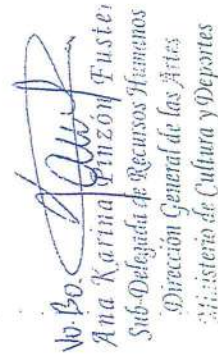 Vo. Bo.
Ana Karina Pinzón Fuster
Sub-Delegada de Recursos Humanos
Dirección General de las Artes
Ministerio de Cultura y Deportes